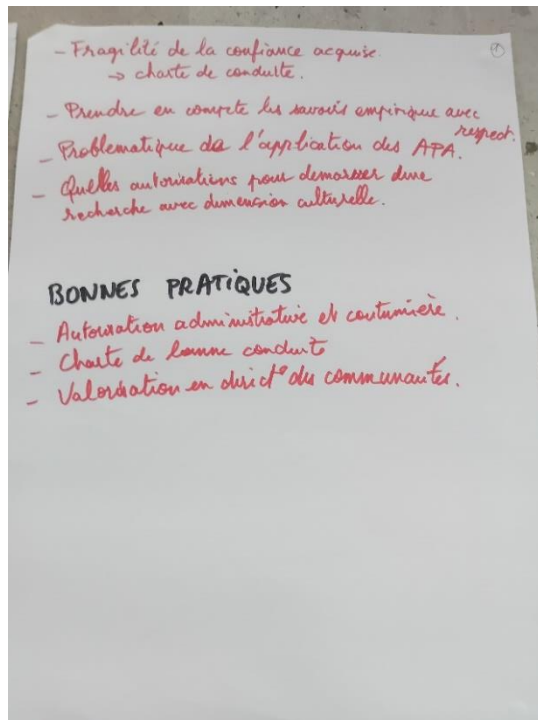 - Fragilité de la confiance acquise.
→ charte de conduite.
- Prendre en compte les savoirs empirique avec
respect.
- Problematique de l'application des APA.
- Quelles autorisations pour demarrer dune
recherche avec dimension culturelle.
BONNES PRATIQUES
- Autorisation administrative et coutumière.
- Charte de bonne conduite
- Valorisation en direct° des communautés.